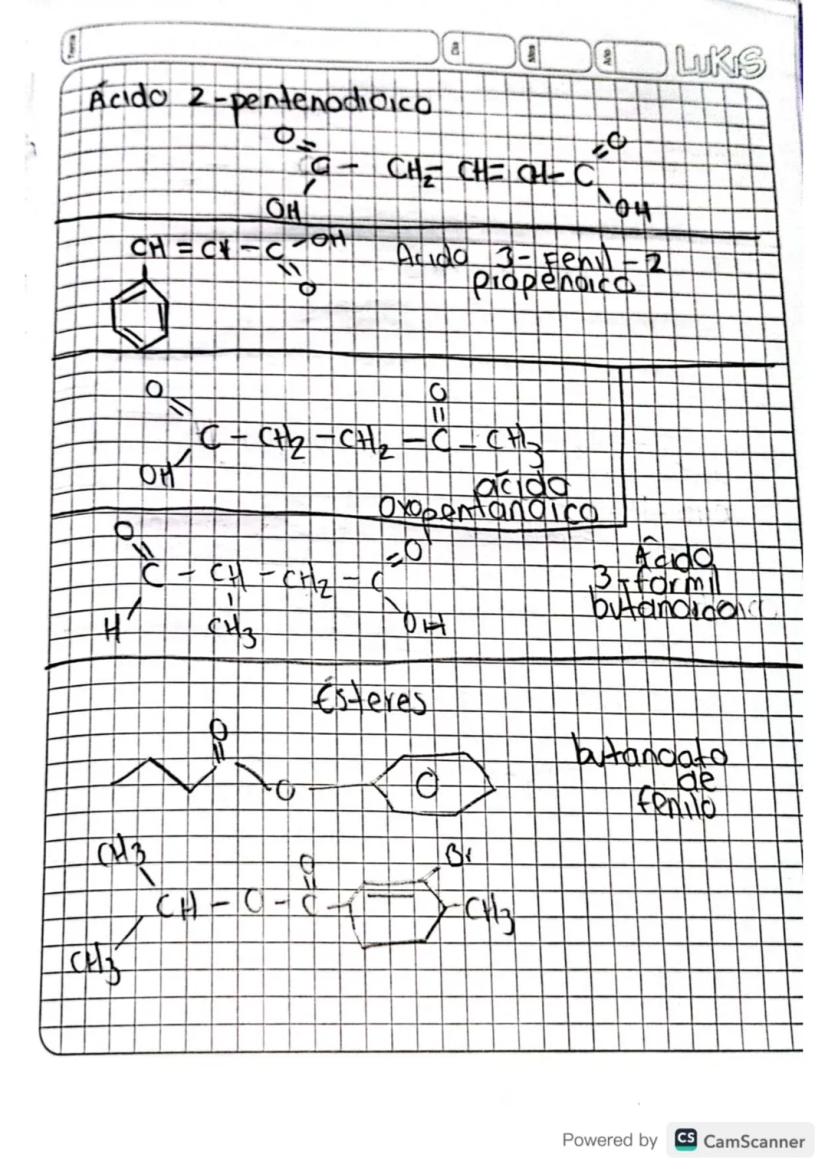 Tema
Día
Mes
Año
LUKIS
Ácido 2-pentenodioico
O
C - CH2 - CH = CH - C
O
OH
OH
CH = CH - C - OH
O
Acido 3-Fenil-2
propenoico
O
O
C - CH2 - CH2 - C - CH3
OH
ácido
oxopentanoico
O
O
C - CH - CH2 - C
H
CH3
OH
Ácido
3-formil
butanoico
Ésteres
O
O
O
butanoato
de
fenilo
CH3
O
Br
CH - O - C
CH3
CH3
Powered by CS CamScanner